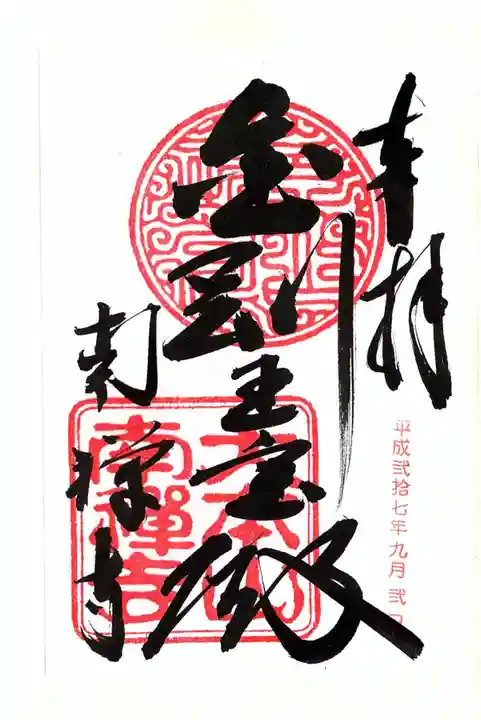 奉拝
平成弐拾七年九月弐
金剛王宝殿
南禅寺
大本山
南禪寺